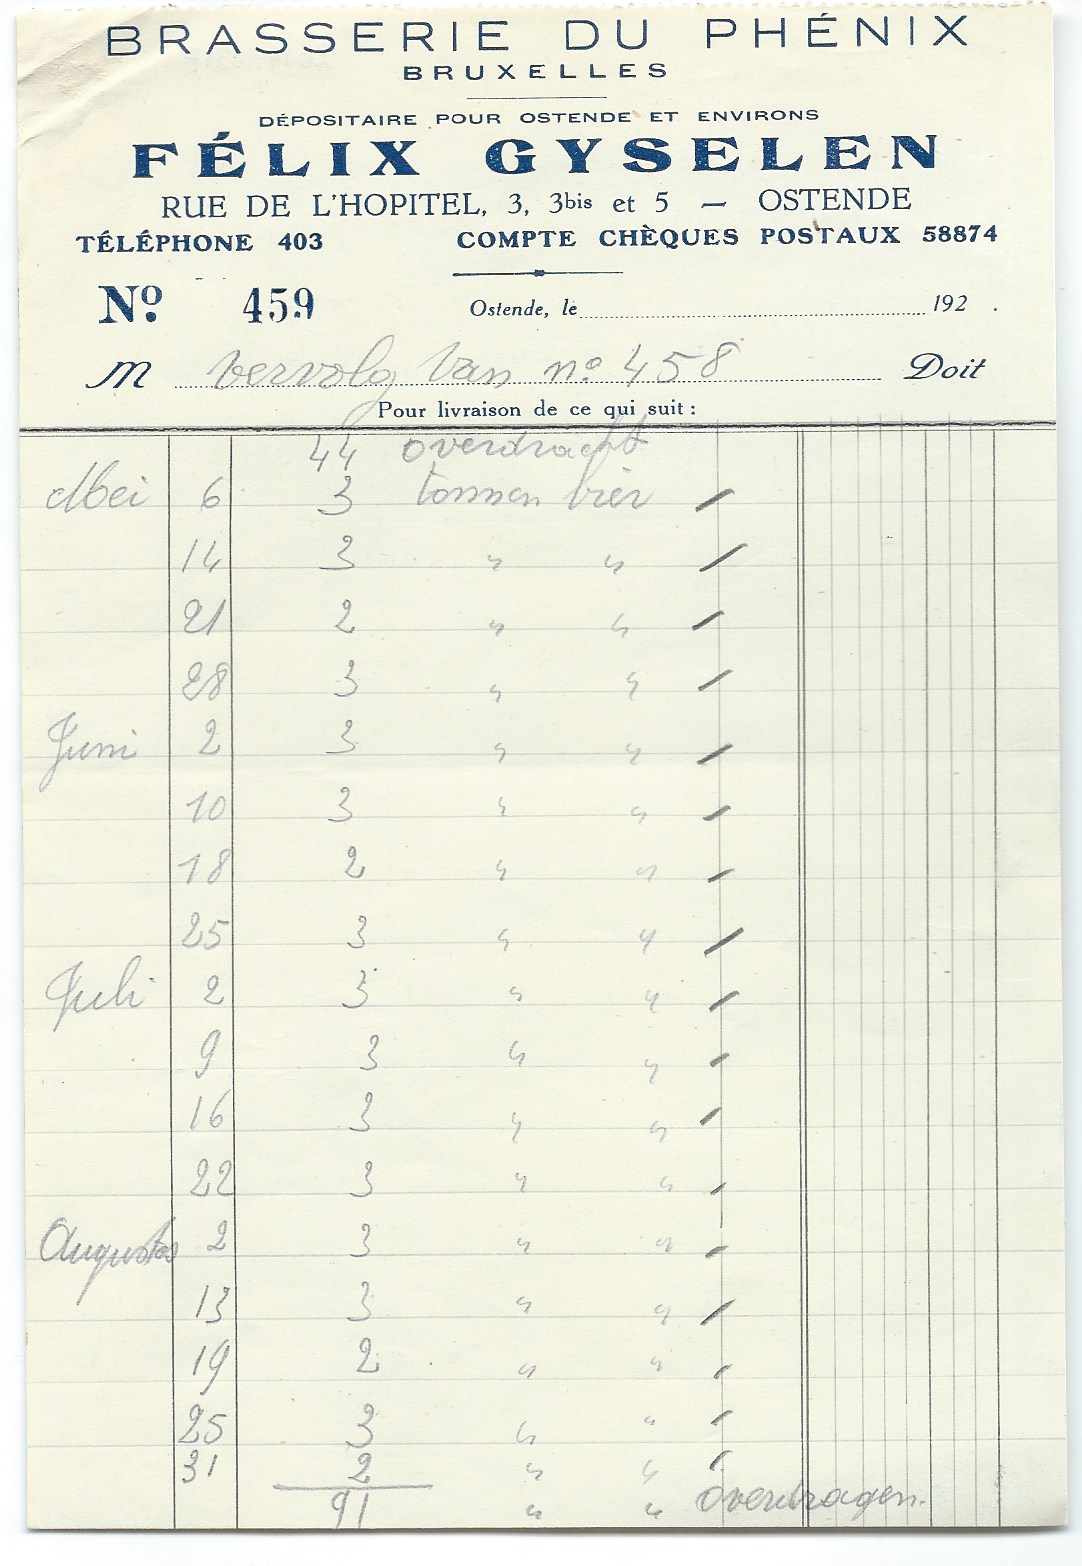 BRASSERIE DU PHÉNIX
BRUXELLES
DÉPOSITAIRE POUR OSTENDE ET ENVIRONS
FÉLIX GYSELEN
RUE DE L'HOPITEL, 3, 3bis et 5 — OSTENDE
TÉLÉPHONE 403 COMPTE CHÈQUES POSTAUX 58874
No. 459 Ostende, le 192 .
M Vervolg van no. 458 Doit
Pour livraison de ce qui suit :
44 overdracht
Mei 6 3 tonnen bier /
14 3 " " /
21 2 " " /
28 3 " " /
Juni 2 3 " " /
10 3 " " /
18 2 " " /
25 3 " " /
Juli 2 3 " " /
9 3 " " /
16 3 " " /
22 3 " " /
Augustus 2 3 " " /
13 3 " " /
19 2 " " /
25 3 " " /
31 2 " " /
91 " " overdragen.